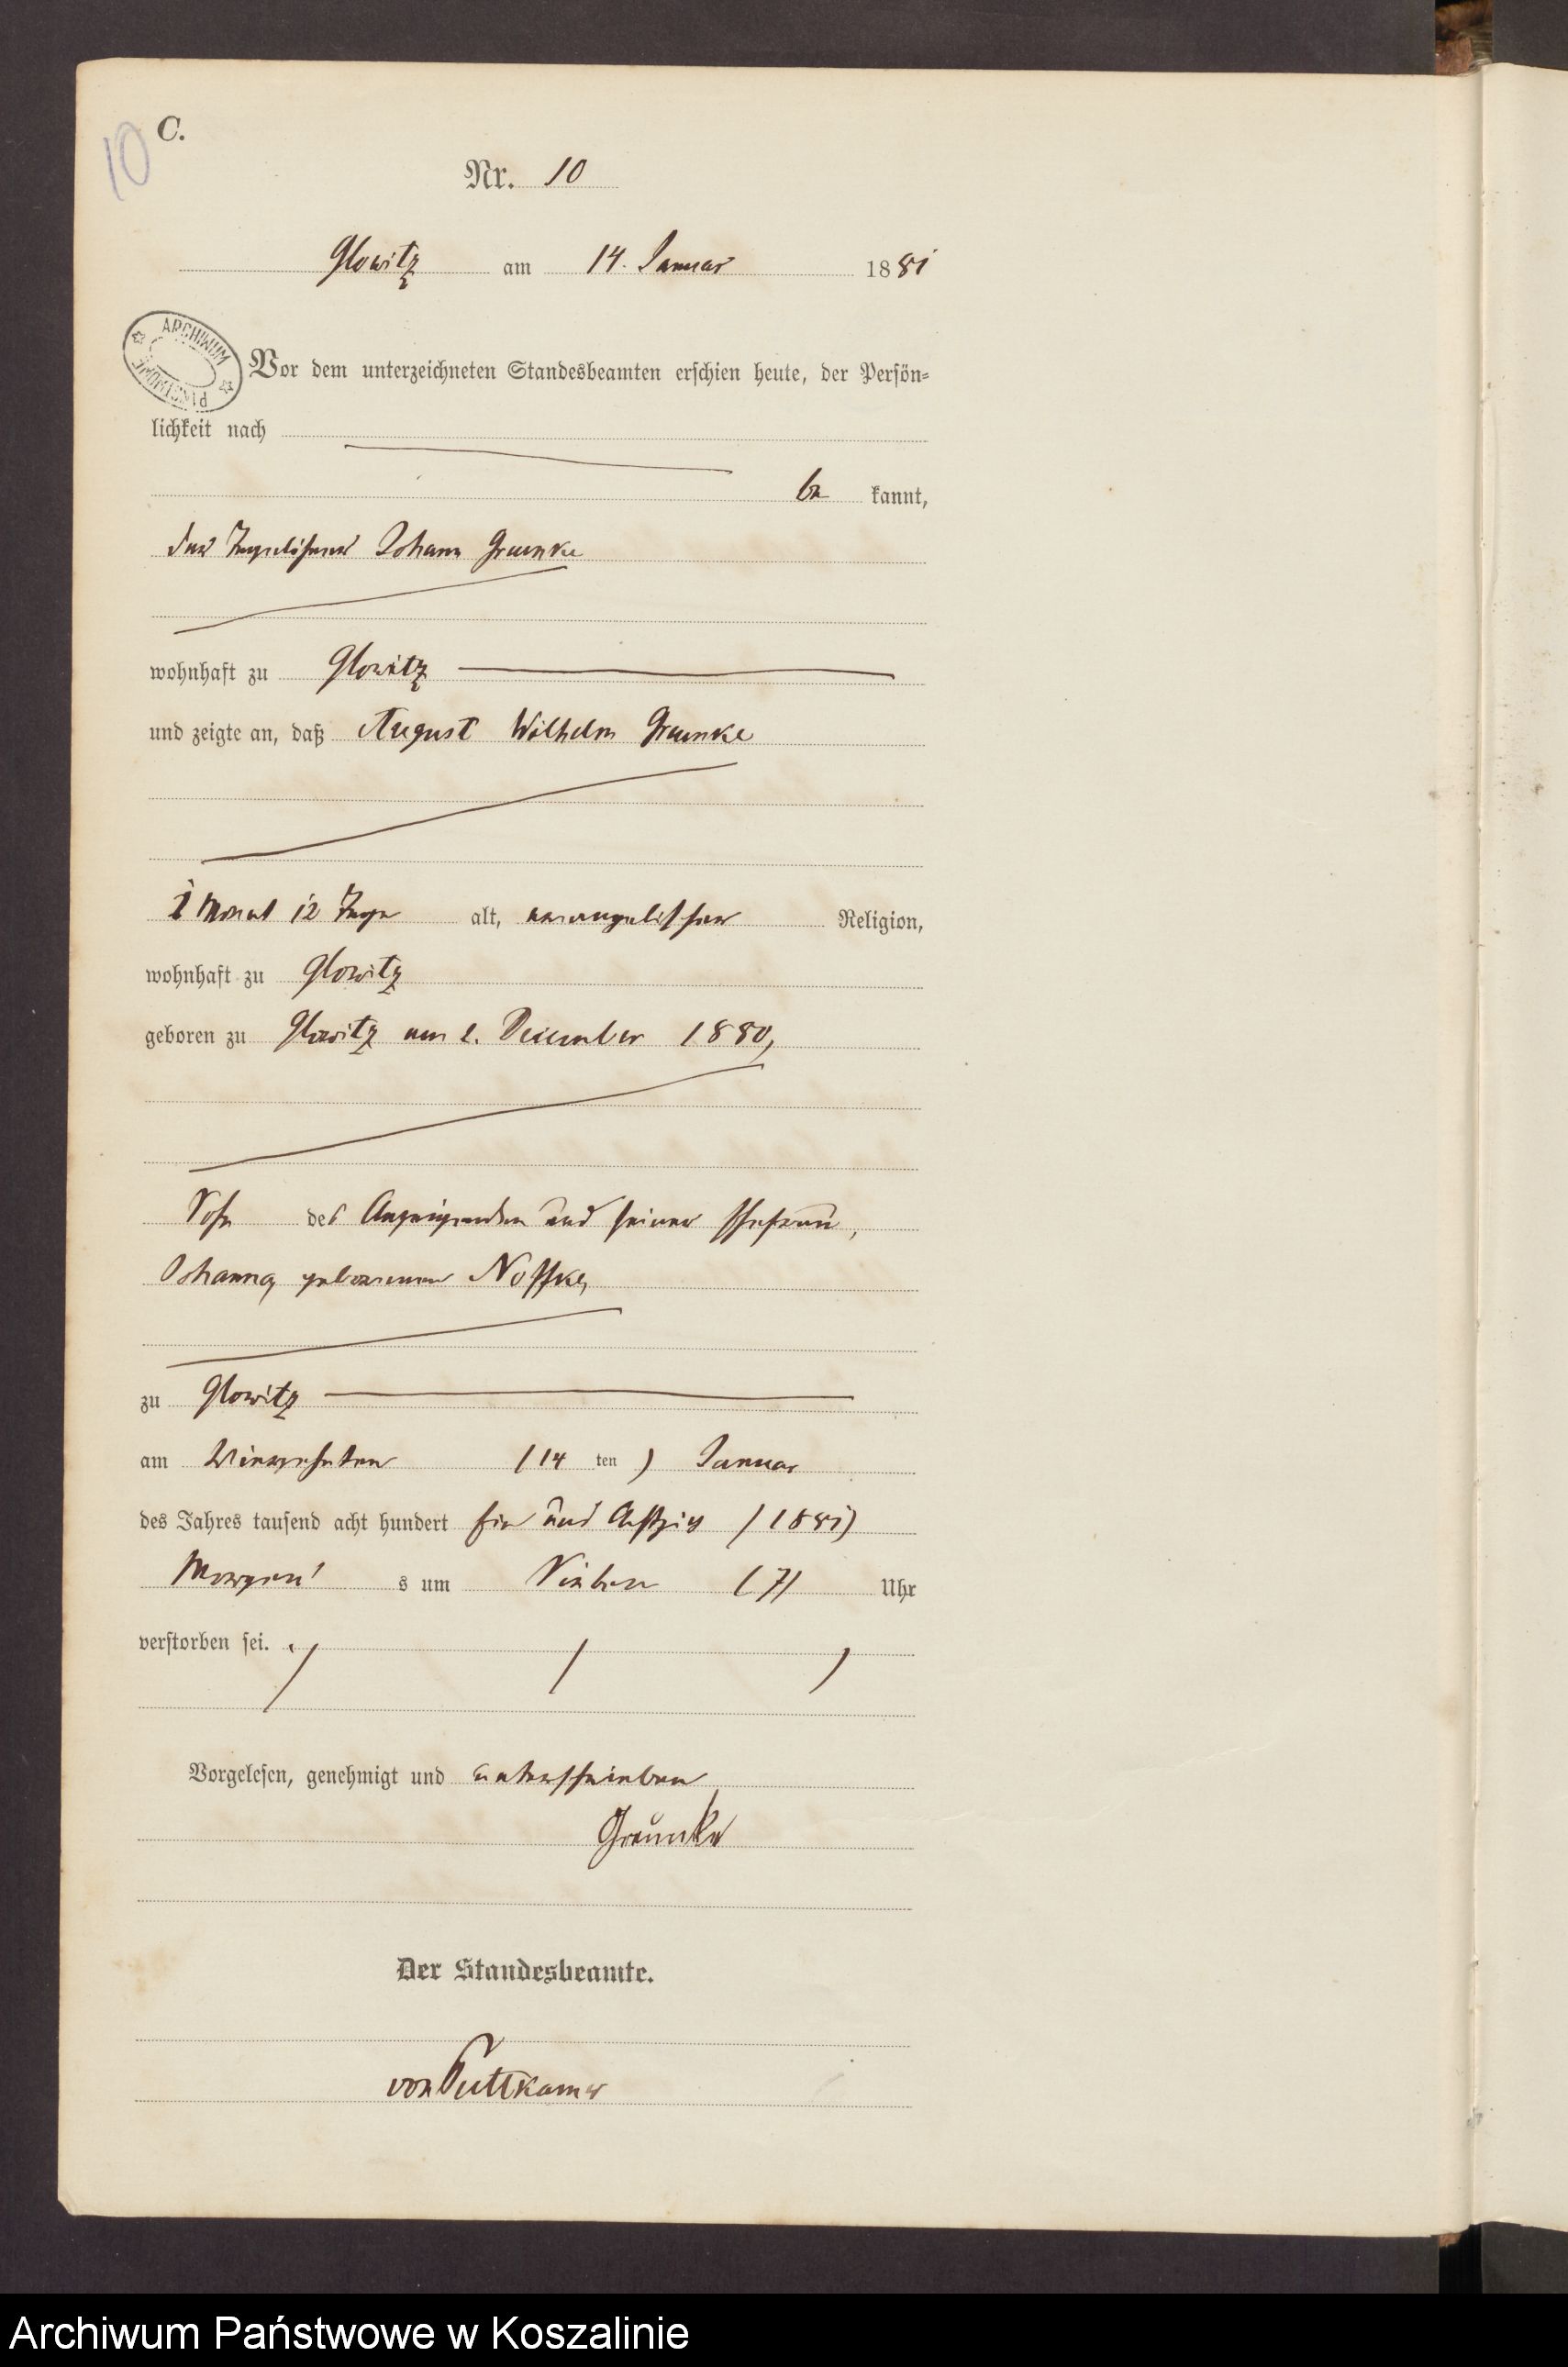 10
C.
Nr. 10
Glowitz am 14. Januar 1881
ARCHIWUM
PAŃSTWOWE
Vor dem unterzeichneten Standesbeamten erschien heute, der Persön=
lichkeit nach
be kannt,
der Tagelöhner Johann Graunke
wohnhaft zu Glowitz
und zeigte an, daß August Wilhelm Graunke
1 Monat 12 Tage alt, evangelischer Religion,
wohnhaft zu Glowitz
geboren zu Glowitz am 2. December 1880,
Sohn des Anzeigenden und seiner Ehefrau,
Johanna geborenen Noffke,
zu Glowitz
am Vierzehnten (14 ten) Januar
des Jahres tausend acht hundert Ein und Achtzig (1881)
Morgen s um Sieben (7) Uhr
verstorben sei.
Vorgelesen, genehmigt und unterschrieben
Graunke
Der Standesbeamte.
von Puttkamer
Archiwum Państwowe w Koszalinie